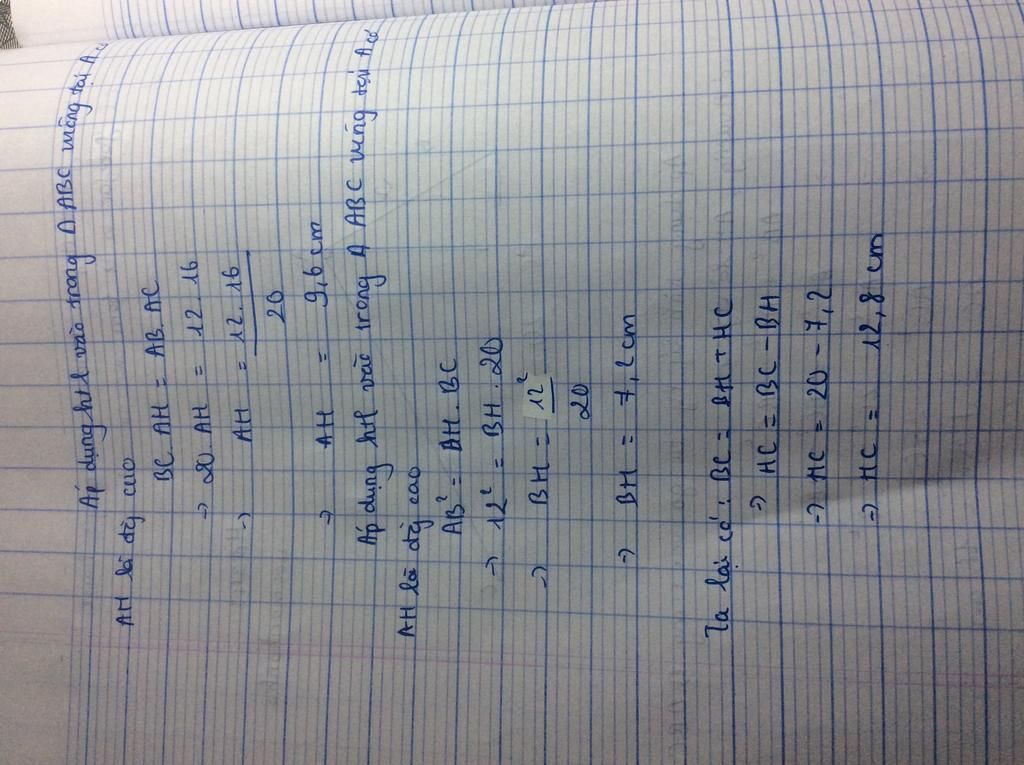 Áp dụng htl vào trong Δ ABC vuông tại A có
AH là đg cao
BC. AH = AB. AC
-> 20. AH = 12. 16
-> AH = 12. 16
20
-> AH = 9,6 cm
Áp dụng htl vào trong Δ ABC vuông tại A có
AH là đg cao
AB² = BH. BC
-> 12² = BH. 20
-> BH = 12²
20
-> BH = 7,2 cm
Ta lại có: BC = BH + HC
-> HC = BC - BH
-> HC = 20 - 7,2
-> HC = 12,8 cm